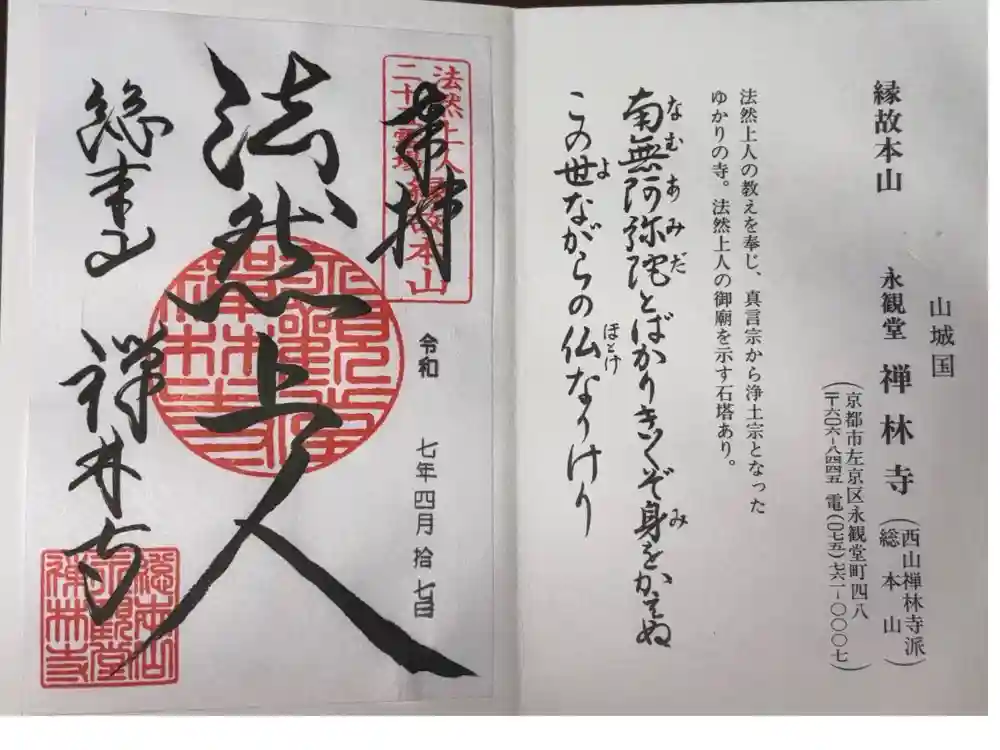 山城国
縁故本山 永観堂 禅林寺（西山禅林寺派 総本山）
（京都市左京区永観堂町四八
〒六〇六－八四四五 電（〇七五）七六一－〇〇〇七）
法然上人の教えを奉じ、真言宗から浄土宗となった
ゆかりの寺。法然上人の御廟を示す石塔あり。
なむあみだ み
南無阿弥陀とばかりきくぞ身をかへぬ
よ ほとけ
この世ながらの仏なりけり
法然上人
縁故本山
奉拝
令和 七年四月拾七日
法然上人
永観堂
禅林寺
総本山
禅林寺
総本山
永観堂
禅林寺